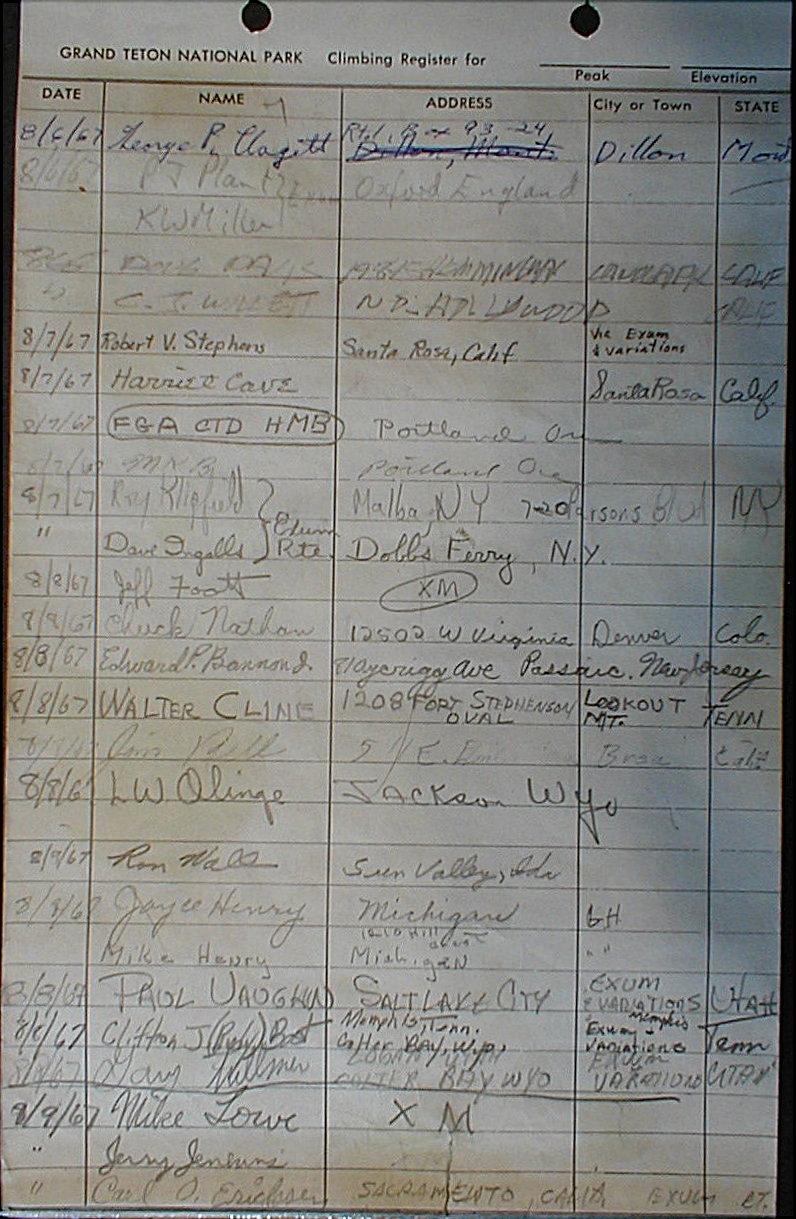 GRAND TETON NATIONAL PARK Climbing Register for
Peak Elevation
DATE NAME ADDRESS City or Town STATE
8/6/67 George P. Clagitt Rt. 1, Box 93-24 Dillon, Mont. Dillon Mont
8/6/67 P J Plant Exum Oxford England
KW Miller
CALIF
" C. J. NO. HOLLYWOOD CALIF
8/7/67 Robert V. Stephens Santa Rosa, Calif Via Exum
& variations
8/7/67 Harriet Cave Santa Rosa Calif.
8/7/67 FGA CTD HMB Portland Ore
8/7/67 Portland Ore
8/7/67 Roy Kligfield Malba, NY 7-20 Parsons Blvd NY
" Dave Ingalls Exum Rte. Dobbs Ferry, N.Y.
8/8/67 Jeff Foott XM
8/8/67 Chuck Nathan 12502 W Virginia Denver Colo.
8/8/67 Edward P. Bannon Jr. Ave Passaic. New Jersey
8/8/67 WALTER CLINE 1208 FORT STEPHENSON OVAL LOOKOUT MT. TENN
Jim E. Brea Calif
8/8/6 LW Olinge Jackson Wyo
8/9/67 Ron Wall Sun Valley, Ida
8/8/67 Joyce Henry Michigan GH
Mike Henry Michigan " "
8/8/67 PAUL VAUGHN SALT LAKE CITY EXUM & VARIATIONS UTAH
8/8/67 Clifton J (Rusty) Best Memphis, Tenn. Colter Bay, Wyo, Memphis Exum & variations Tenn
8/8/67 Gary COLTER BAY WYO EXUM VARATIONS UTAH
8/9/67 Mike Lowe X M
" Jerry Jenkins
" Carl O. Erichsen SACRAMENTO, CALIF. EXUM RT.